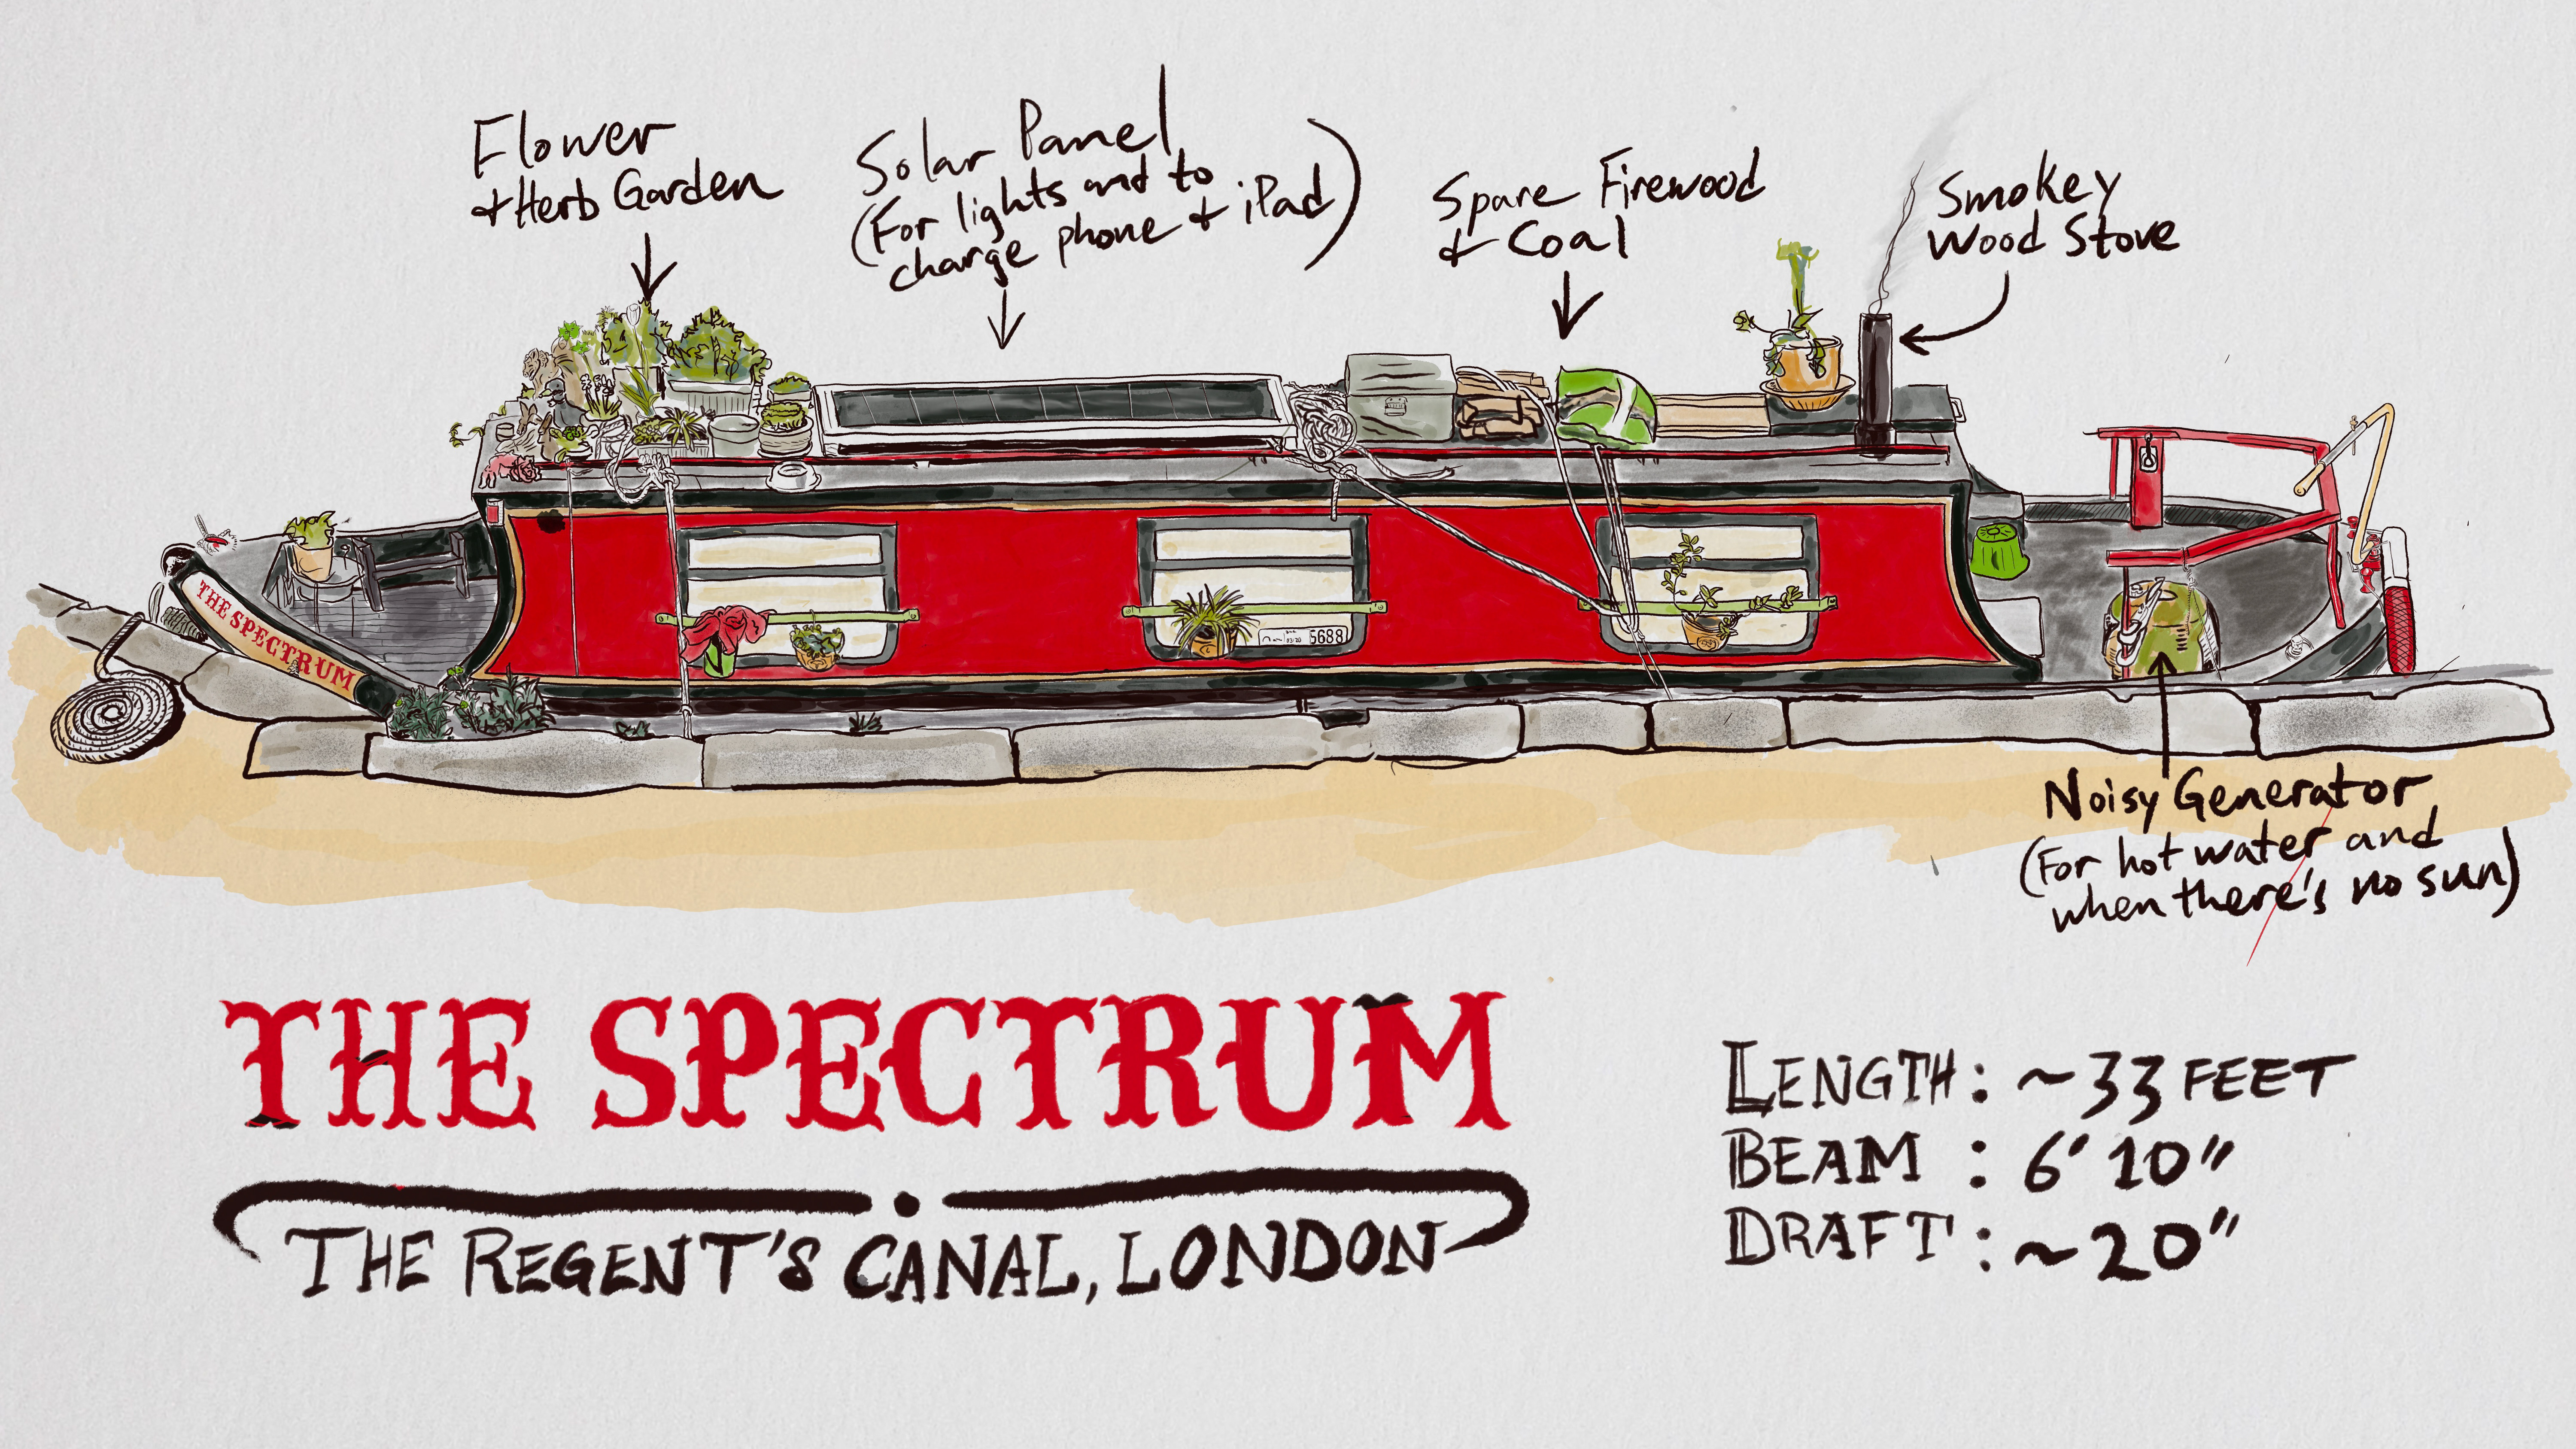 Flower
& Herb Garden
Solar Panel
(For lights and to
charge phone & iPad)
Spare Firewood
& Coal
Smokey
Wood Stove
THE SPECTRUM
5688
Noisy Generator
(For hot water and
when there's no sun)
THE SPECTRUM
THE REGENT'S CANAL, LONDON
LENGTH: ~33 FEET
BEAM : 6' 10"
DRAFT : ~20"